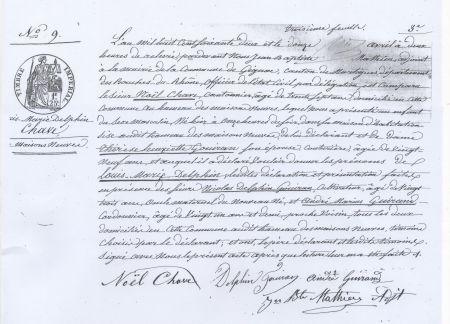 troisieme feuillet
3e
No 9.
L'an mil huit cent soixante deux et le douze avril à deux
heures de relevée, pardevant Nous Jean Baptiste Mathieu, adjoint
à la mairie de la Commune de Gignac, canton de Martigues, département
des Bouches du Rhône, officier de l'état civil par délégation, est comparu
le sieur Noël Chave, Cantonnier, âgé de trente sept ans, domicilié en cette
Commune au hameau des maisons Neuves, lequel Nous a présenté un enfant
du sexe Masculin, Né hier à onze heures du soir, dans la maison d'habitation
sise audit hameau des maisons Neuves, de lui déclarant et de Dame
Henriette Gouiran son épouse, Couturière, âgée de vingt
Neuf ans, et auquel il a déclaré vouloir donner les prénoms de
Louis Marie Delphin, lesdites déclaration et présentation faites
en présence des sieurs Nicolas Delphin Gouiran, Cultivateur, âgé de vingt
trois ans, oncle maternel du Nouveau Né, et André Marius Guirand
Cordonnier, âgé de vingt un ans et demi, proche Voisin, tous les deux
domiciliés en cette Commune audit hameau des maisons Neuves, témoins
Choisis par le déclarant, et ont, le père déclarant et lesdits témoins
signé avec Nous le présent acte après que lecture leur en a été faite.
TIMBRE IMPERIAL
Marie Delphin
Chave
Maisons Neuves
Noël Chave
Delphin Gouiran
André Guirand
Jn Bte Mathieu Adjt